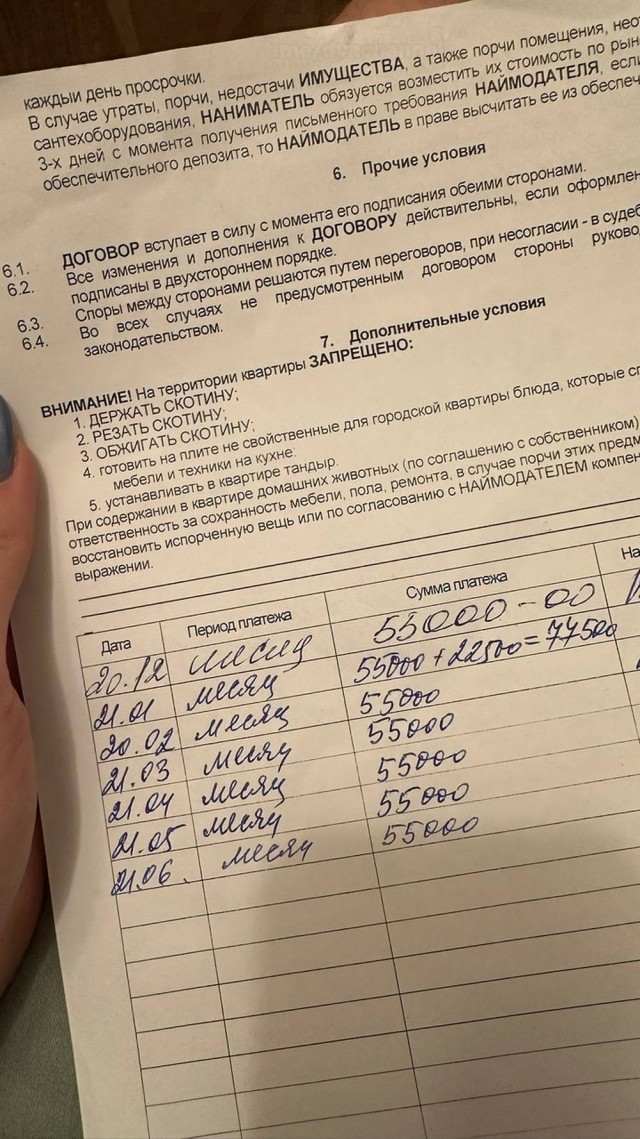 каждый день просрочки.
В случае утраты, порчи, недостачи ИМУЩЕСТВА, а также порчи помещения,
сантехоборудования, НАНИМАТЕЛЬ обязуется возместить их стоимость по
3-х дней с момента получения письменного требования НАЙМОДАТЕЛЯ,
обеспечительного депозита, то НАЙМОДАТЕЛЬ в праве высчитать ее из
6. Прочие условия
6.1. ДОГОВОР вступает в силу с момента его подписания обеими сторонами.
6.2. Все изменения и дополнения к ДОГОВОРУ действительны, если
подписаны в двухстороннем порядке.
6.3. Споры между сторонами решаются путем переговоров, при несогласии - в
6.4. Во всех случаях не предусмотренным договором стороны
законодательством.
7. Дополнительные условия
ВНИМАНИЕ! На территории квартиры ЗАПРЕЩЕНО:
1. ДЕРЖАТЬ СКОТИНУ;
2. РЕЗАТЬ СКОТИНУ;
3. ОБЖИГАТЬ СКОТИНУ;
4. готовить на плите не свойственные для городской квартиры блюда, которые
мебели и техники на кухне.
5. устанавливать в квартире тандыр.
При содержании в квартире домашних животных (по соглашению с собственником)
ответственность за сохранность мебели, пола, ремонта, в случае порчи этих
восстановить испорченную вещь или по согласованию с НАЙМОДАТЕЛЕМ
выражении.
Дата Период платежа Сумма платежа
20.12 месяц 55000-00
21.01 месяц 55000 + 22500 = 77500
20.02 месяц 55000
21.03 месяц 55000
21.04 месяц 55000
21.05 месяц 55000
21.06. месяц 55000